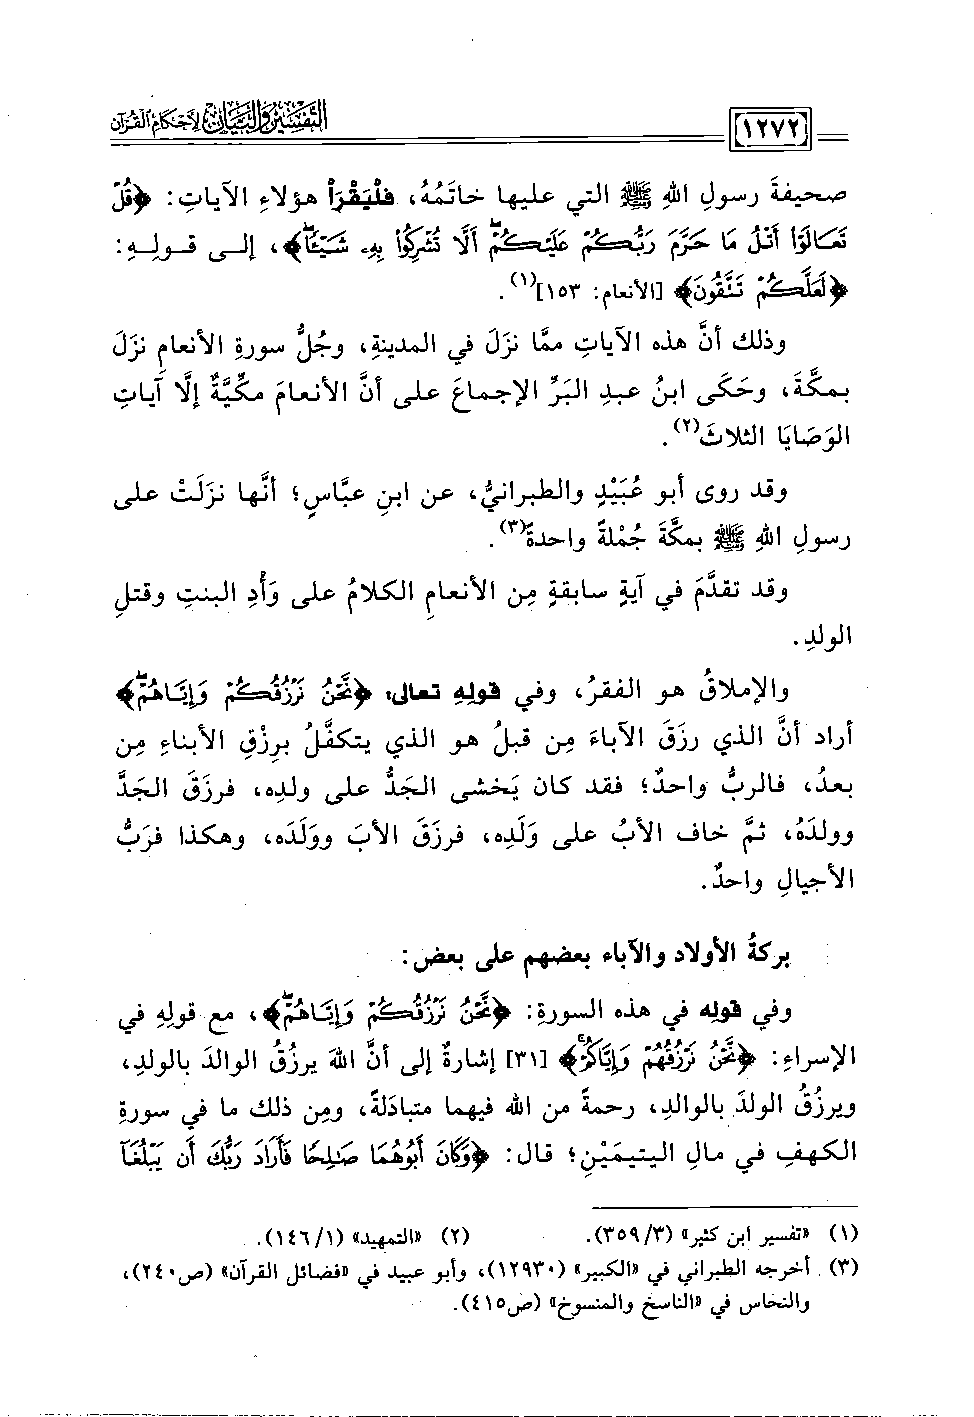 التفسير والبيان لأحكام القرآن
١٢٧٢
صحيفةَ رسولِ اللهِ ﷺ التي عليها خاتَمُهُ، فلْيَقْرَأْ هؤلاءِ الآياتِ: ﴿قُلْ
تَعَالَوْا أَتْلُ مَا حَرَّمَ رَبُّكُمْ عَلَيْكُمْ أَلَّا تُشْرِكُوا بِهِۦ شَيْـًٔا﴾، إلى قولِهِ:
﴿لَعَلَّكُمْ تَتَّقُونَ﴾ [الأنعام: ١٥٣](١).
وذلك أنَّ هذه الآياتِ ممَّا نزَلَ في المدينةِ، وجُلُّ سورةِ الأنعامِ نزَلَ
بمكَّةَ، وحَكَى ابنُ عبدِ البَرِّ الإجماعَ على أنَّ الأنعامَ مكِّيَّةٌ إلَّا آياتِ
الوَصَايَا الثلاثَ(٢).
وقد روى أبو عُبَيْدٍ والطبرانيُّ، عن ابنِ عبَّاسٍ؛ أنَّها نزَلَتْ على
رسولِ اللهِ ﷺ بمكَّةَ جُمْلةً واحدةً(٣).
وقد تقدَّمَ في آيةٍ سابقةٍ مِن الأنعامِ الكلامُ على وَأْدِ البنتِ وقتلِ
الولدِ.
والإملاقُ هو الفقرُ، وفي قولِهِ تعالى: ﴿نَّحْنُ نَرْزُقُكُمْ وَإِيَّاهُمْ﴾
أراد أنَّ الذي رزَقَ الآباءَ مِن قبلُ هو الذي يتكفَّلُ برِزْقِ الأبناءِ مِن
بعدُ، فالربُّ واحدٌ؛ فقد كان يَخشى الجَدُّ على ولدِه، فرزَقَ الجَدَّ
وولدَهُ، ثمَّ خاف الأبُ على وَلَدِه، فرزَقَ الأبَ ووَلَدَه، وهكذا فرَبُّ
الأجيالِ واحدٌ.
بركةُ الأولاد والآباء بعضهم على بعض:
وفي قولِه في هذه السورةِ: ﴿نَّحْنُ نَرْزُقُكُمْ وَإِيَّاهُمْ﴾، مع قولِهِ في
الإسراءِ: ﴿نَّحْنُ نَرْزُقُهُمْ وَإِيَّاكُمْ﴾ [٣١] إشارةٌ إلى أنَّ اللهَ يرزُقُ الوالدَ بالولدِ،
ويرزُقُ الولدَ بالوالدِ، رحمةً من اللهِ فيهما متبادَلةً، ومِن ذلك ما في سورةِ
الكهفِ في مالِ اليتيمَيْنِ؛ قال: ﴿وَكَانَ أَبُوهُمَا صَٰلِحًا فَأَرَادَ رَبُّكَ أَن يَبْلُغَآ
(١) «تفسير ابن كثير» (٣/٣٥٩). (٢) «التمهيد» (١/١٤٦).
(٣) أخرجه الطبراني في «الكبير» (١٢٩٣٠)، وأبو عبيد في «فضائل القرآن» (ص٢٤٠)،
والنحاس في «الناسخ والمنسوخ» (ص٤١٥).